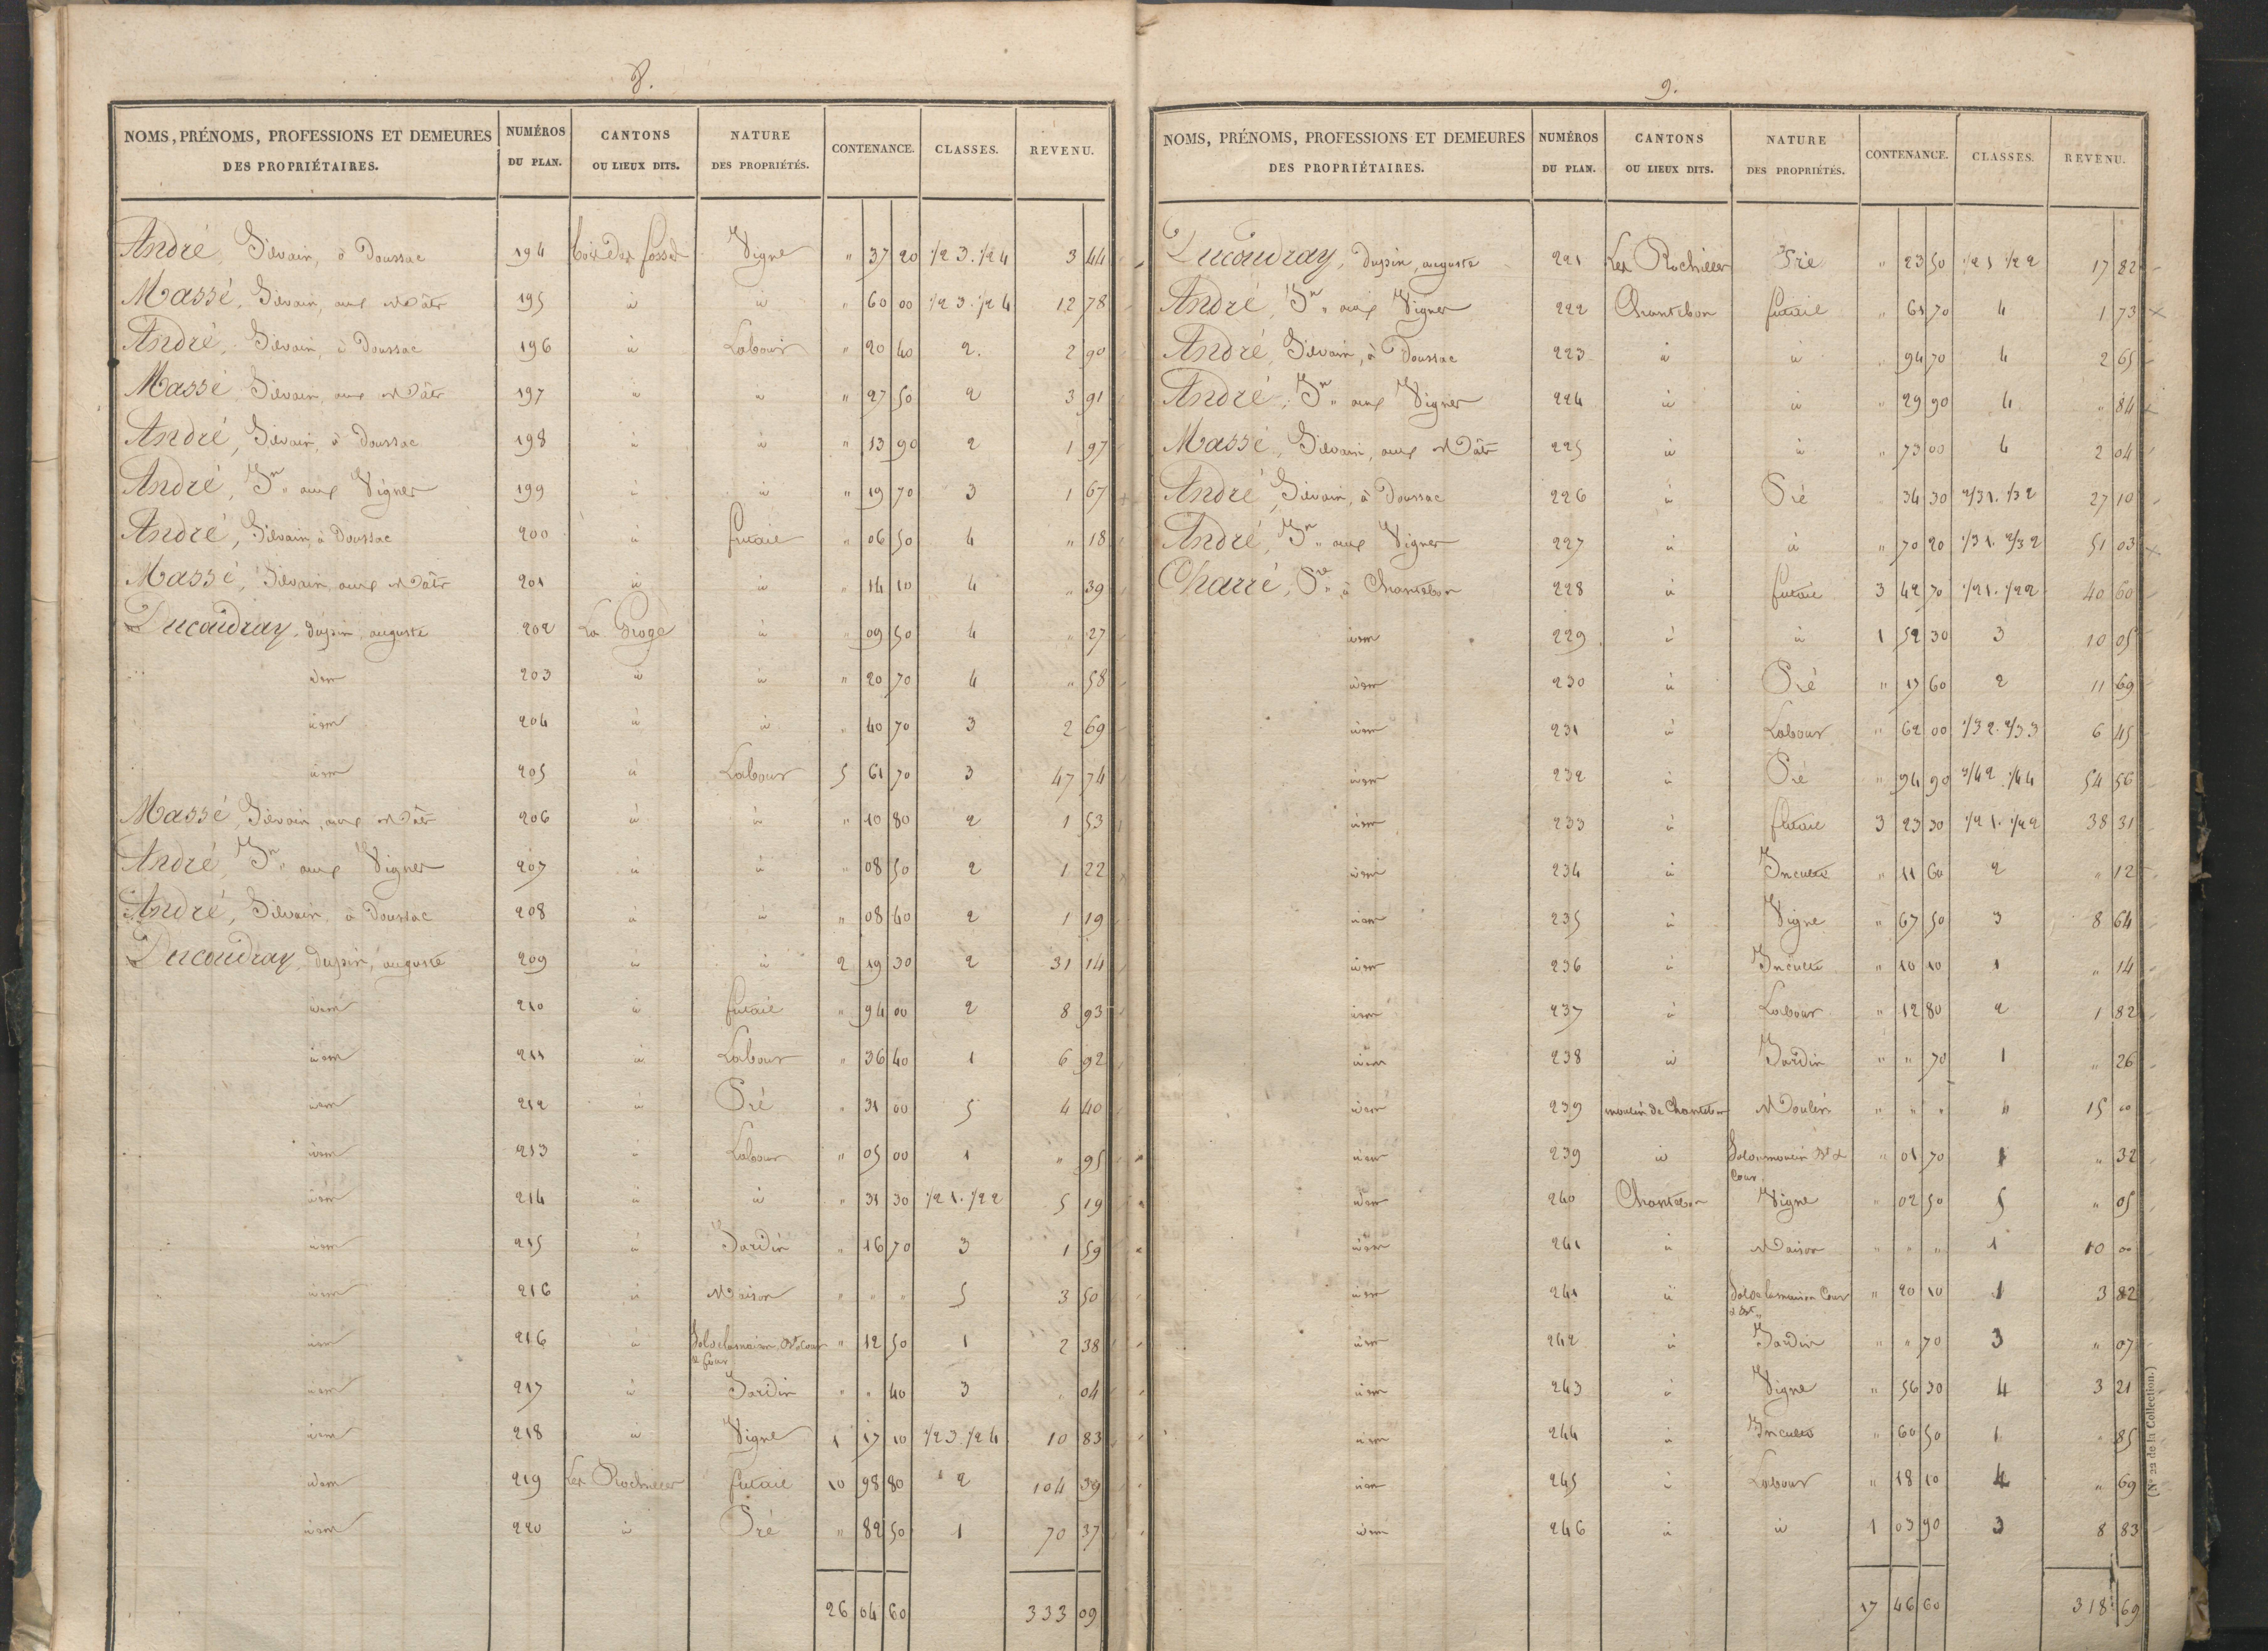 8.
NOMS, PRÉNOMS, PROFESSIONS ET DEMEURES DES PROPRIÉTAIRES. NUMÉROS DU PLAN. CANTONS OU LIEUX DITS. NATURE DES PROPRIÉTÉS. CONTENANCE. CLASSES. REVENU.
André, Silvain, à Doussac 194 Vigne " 37 20 1/2 3. 1/2 4 3 44
Massé, Silvain, aux Mâts 195 id id " 60 00 1/2 3. 1/2 4 12 78
André, Silvain, à Doussac 196 id Labour " 20 40 2. 2 90
Massé, Silvain, aux Mâts 197 id id " 27 50 2 3 91
André, Silvain, à Doussac 198 id id " 13 90 2 1 97
André, Jn aux Vignes 199 id id " 19 70 3 1 67
André, Silvain, à Doussac 200 id futaie " 06 50 4 " 18
Massé, Silvain, aux Mâts 201 id id " 14 10 4 " 39
Ducoudray, dupin, auguste 202 La id " 09 50 4 " 27
idem 203 id id " 20 70 4 " 58
idem 204 id id " 40 70 3 2 69
idem 205 id Labour 5 61 70 3 47 74
Massé, Silvain, aux Mâts 206 id id " 10 80 2 1 53
André, Jn aux Vignes 207 id id " 08 50 2 1 22
André, Silvain, à Doussac 208 id id " 08 40 2 1 19
Ducoudray, dupin, auguste 209 id id 2 19 30 2 31 14
idem 210 id futaie " 94 00 2 8 93
idem 211 id Labour " 36 40 1 6 92
idem 212 id Pré " 31 00 5 4 40
idem 213 id Labour " 05 00 1 " 95
idem 214 id id " 31 30 1/2 1. 1/2 2 5 19
idem 215 id Jardin " 16 70 3 1 59
idem 216 id Maison " " " 5 3 50
idem 216 id Sol de la maison, Bt Cour " 12 50 1 2 38
idem 217 id Jardin " " 40 3 " 04
idem 218 id Vigne 1 17 10 1/2 3. 1/2 4 10 83
idem 219 Les futaie 10 98 80 2 104 39
idem 220 id Pré " 82 50 1 70 37
26 04 60 333 09
9.
NOMS, PRÉNOMS, PROFESSIONS ET DEMEURES DES PROPRIÉTAIRES. NUMÉROS DU PLAN. CANTONS OU LIEUX DITS. NATURE DES PROPRIÉTÉS. CONTENANCE. CLASSES. REVENU.
Ducoudray, dupin, auguste 221 Les Pré " 23 50 1/2 1 1/2 2 17 82
André, Jn aux Vignes 222 Chantebon futaie " 61 70 4 1 73
André, Silvain, à Doussac 223 id id " 94 70 4 2 65
André, Jn aux Vignes 224 id id " 29 90 4 " 84
Massé, Silvain, aux Mâts 225 id id " 73 00 4 2 04
André, Silvain, à Doussac 226 id Pré 34 30 2/3 1. 1/3 2 27 10
André, Jn aux Vignes 227 id id " 70 20 1/3 1. 2/3 2 51 03
Charré, à Chantebon 228 id futaie 3 42 70 1/2 1. 1/2 2 40 60
idem 229 id id 1 52 30 3 10 05
idem 230 id Pré " 17 60 2 11 69
idem 231 id Labour " 62 00 1/3 2. 2/3 3 6 45
idem 232 id Pré " 94 90 3/4 2. 1/4 4 54 56
idem 233 id futaie 3 23 30 1/2 1. 1/2 2 38 31
idem 234 id Inculte " 11 60 2 " 12
idem 235 id Vigne " 67 50 3 8 64
idem 236 id Inculte " 10 10 1 " 14
idem 237 id Labour " 12 80 2 1 82
idem 238 id Jardin " " 70 1 " 26
idem 239 moulin de Chantebon Moulin " " " " 15 00
idem 239 id Sol du moulin Bt & Cour " 01 70 1 " 32
idem 240 Chantebon Vigne " 02 50 5 " 05
idem 241 id Maison " " " 1 10 00
idem 241 id Sol de la maison Cour & Bt " 20 10 1 3 82
idem 242 id Jardin " " 70 3 " 07
idem 243 id Vigne " 56 30 4 3 21
idem 244 id Inculte " 60 50 1 " 85
idem 245 id Labour " 18 10 4 " 69
idem 246 id id 1 03 90 3 8 83
17 46 60 318 69
(N° 22 de la Collection.)